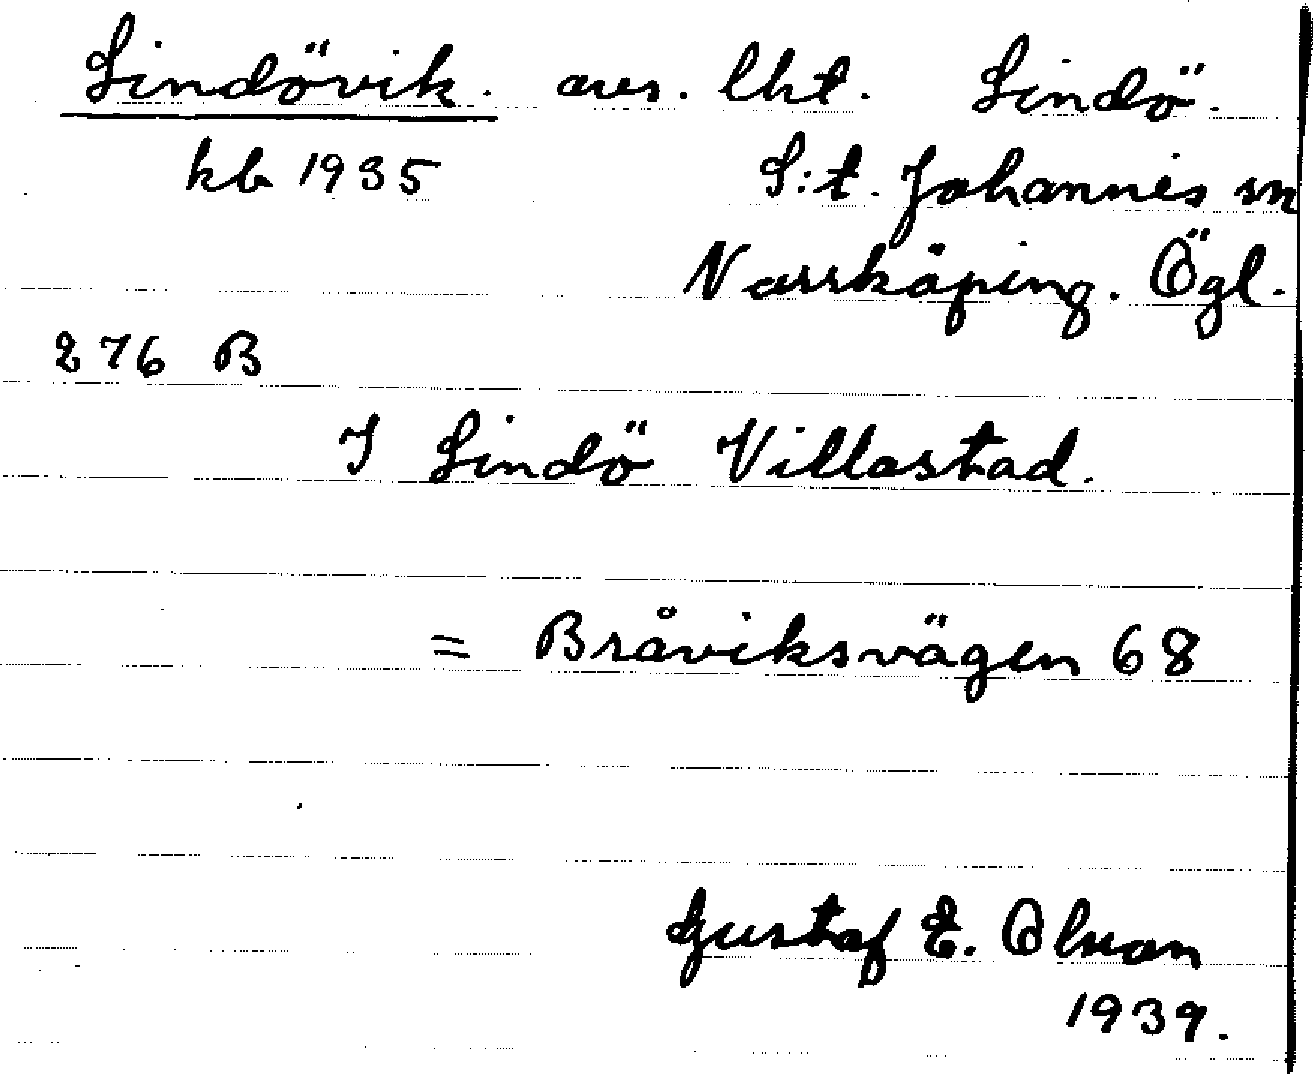 Lindövik. avs. lht. Lindö.
kb 1935 S:t. Johannes sn
Norrköping. Ögl.
276 B
I Lindö Villastad.
= Bråviksvägen 68
Gustaf E. Olson
1939.